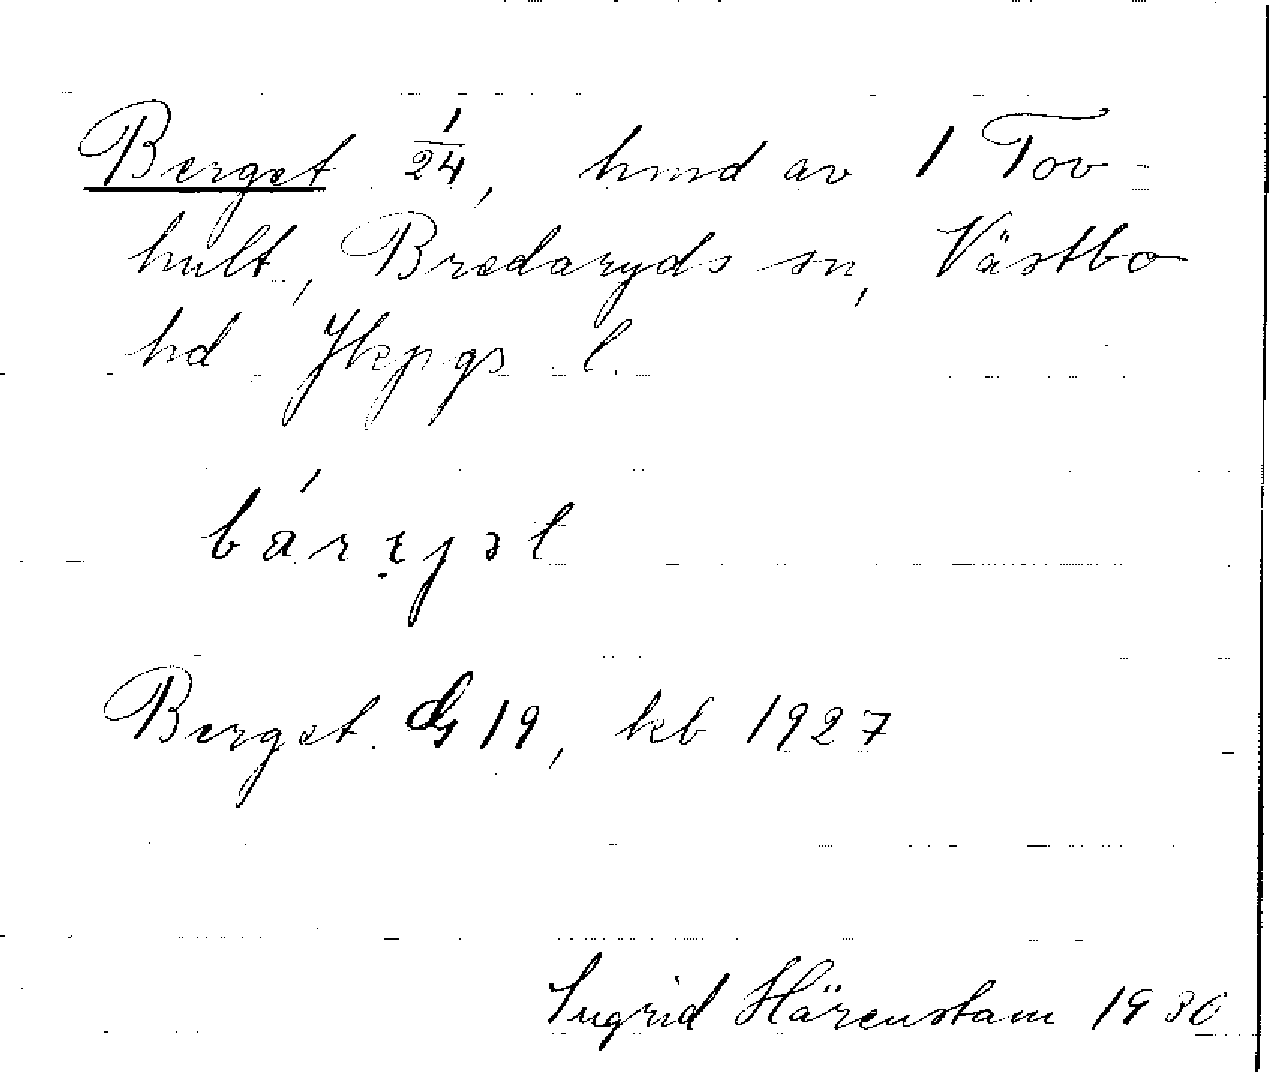 Berget 1/24, hmd av 1 Tov-
hult, Bredaryds sn, Västbo
hd Jkpgs l.
Berget. G 19, kb 1927
Ingrid Härenstam 1930